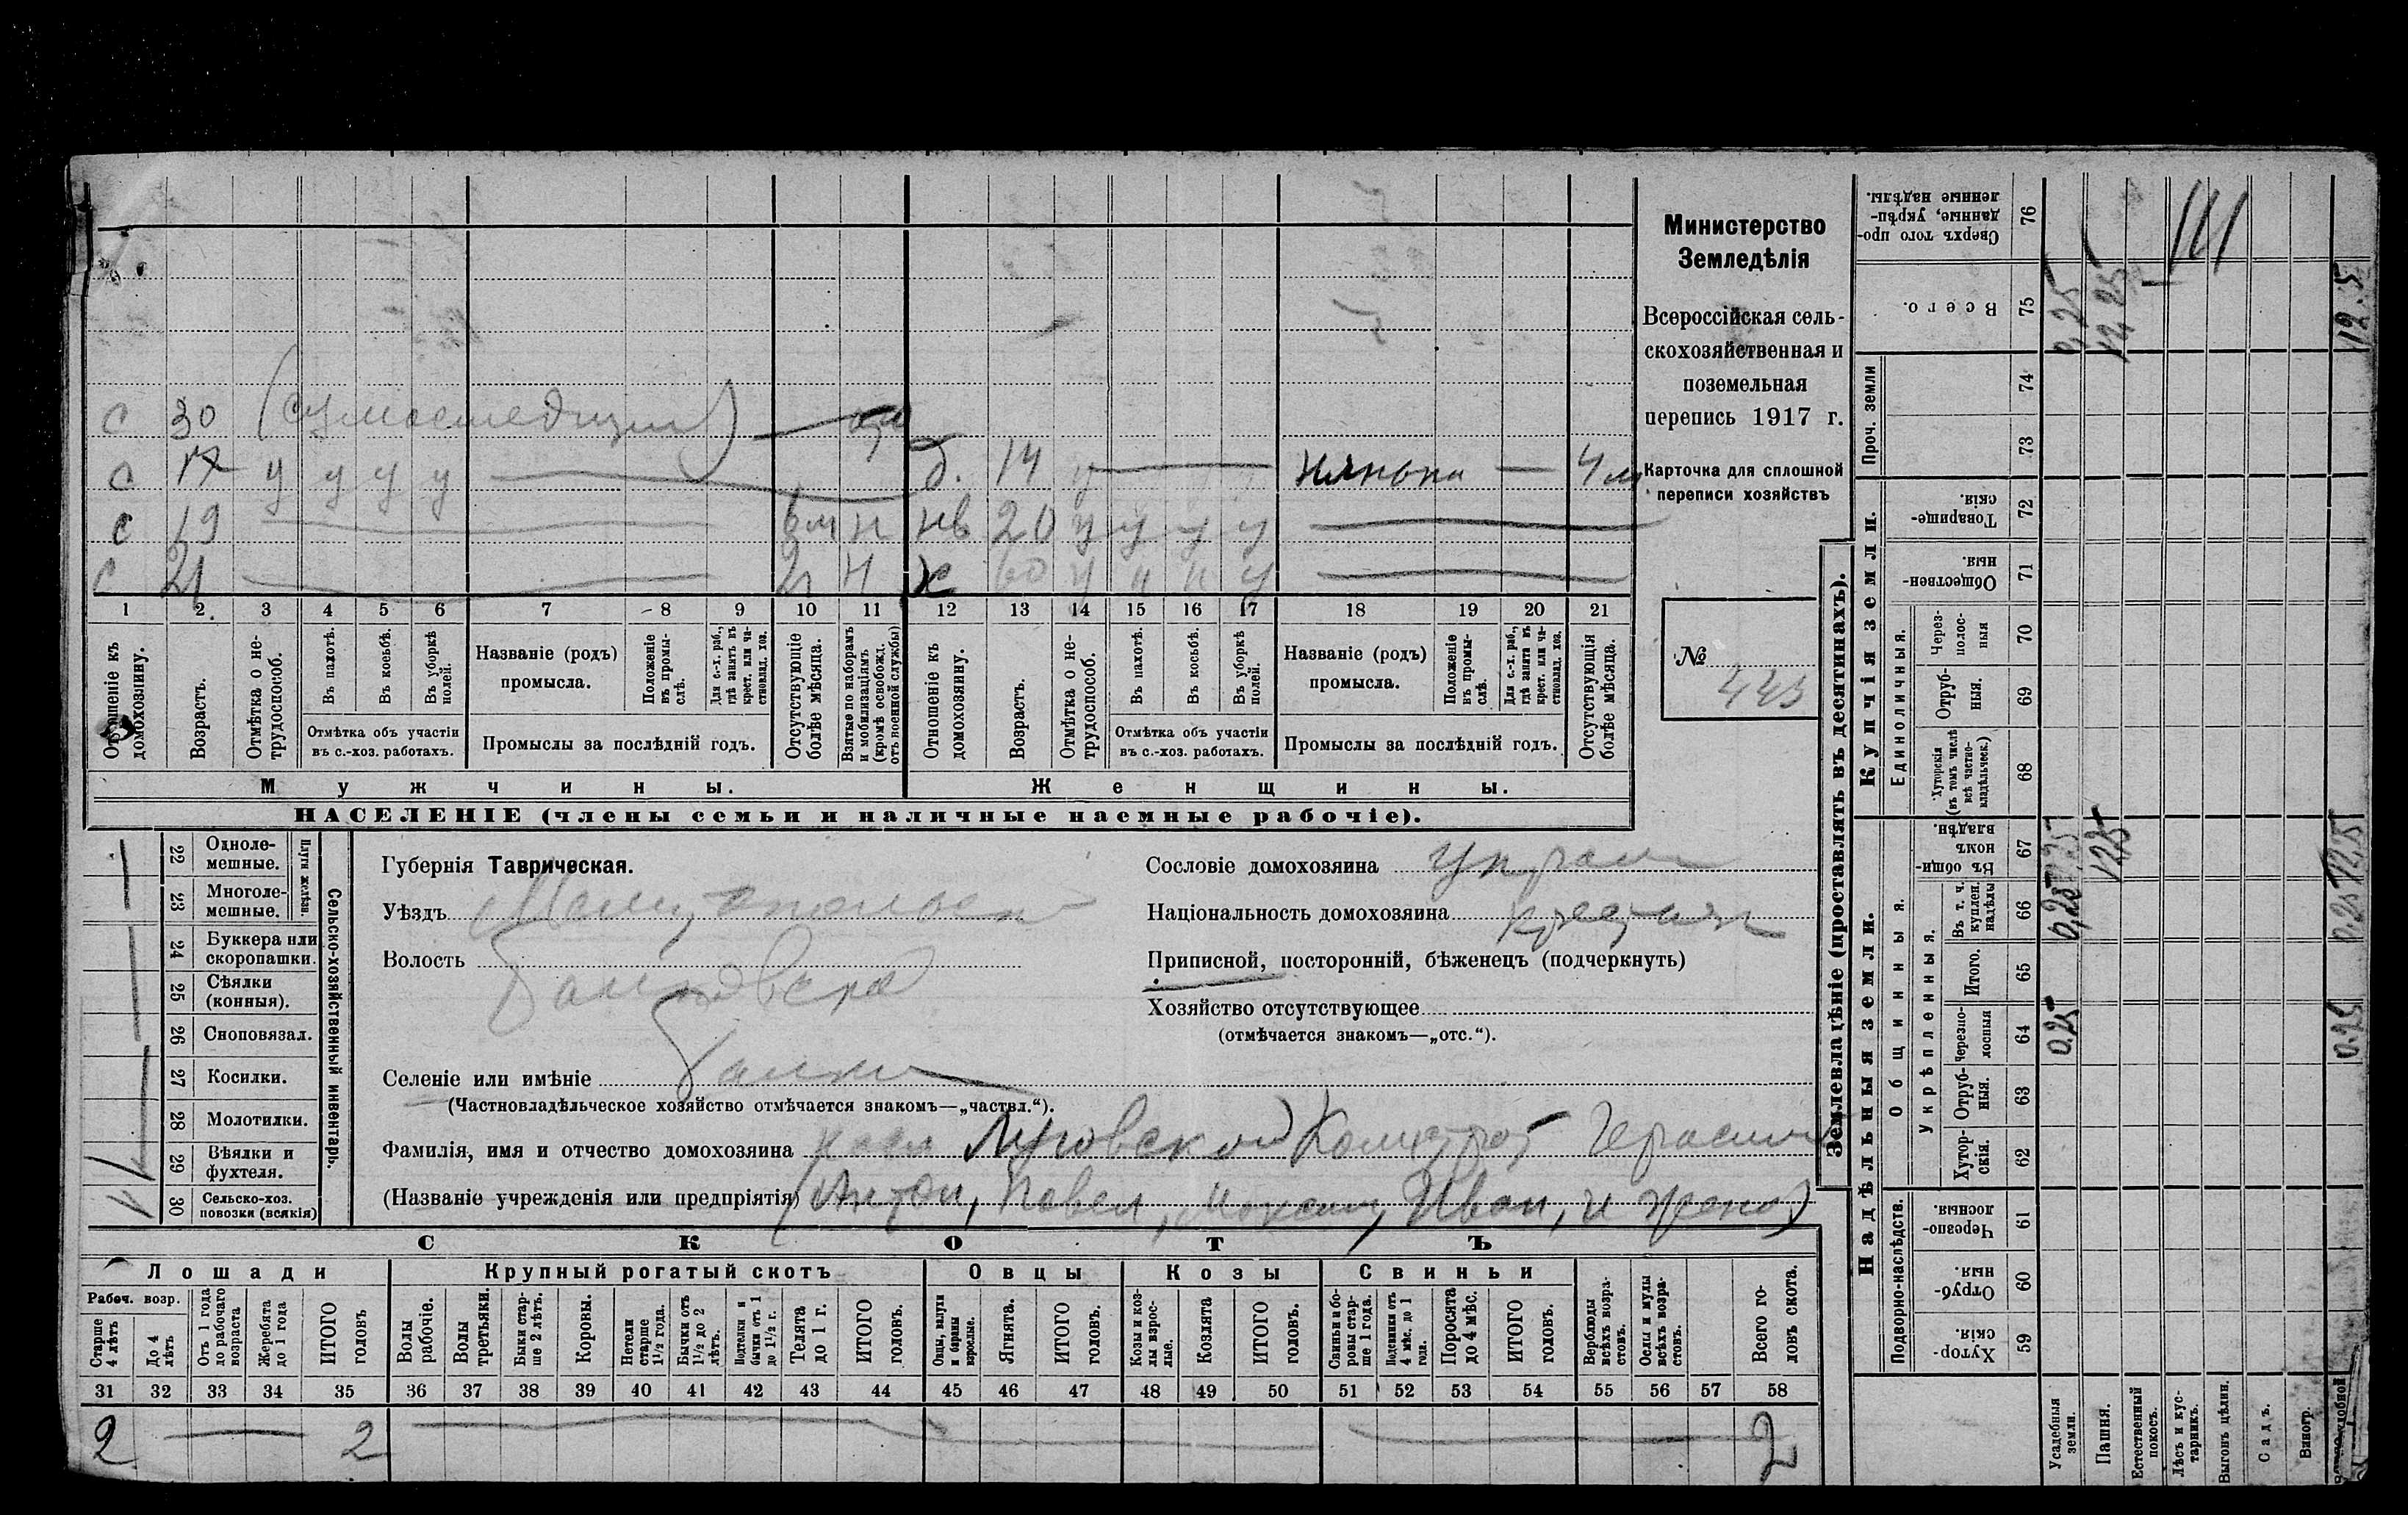 Министерство
Земледѣлія
Всероссійская сель-
скохозяйственная и
поземельная
перепись 1917 г.
Карточка для сплошной
переписи хозяйствъ
№
445
с 30 (сумасшедший)
с 17 у у у у
д. 14 у нянька — 4 м
с 19
6 м н
нв 20 у у у у
с 21
н
ж 60 у и и у
1 2. 3 4 5 6 7 8 9 10 11 12 13 14 15 16 17 18 19 20 21
Отношеніе къ домохозяину.
Возрастъ.
Отмѣтка о не-трудоспособ.
Въ пахотѣ.
Въ косьбѣ.
Въ уборкѣ полей.
Отмѣтка объ участіи
въ с.-хоз. работахъ.
Названіе (родъ)
промысла.
Положеніе въ промы-слѣ.
Для с.-х. раб., гдѣ занятъ въ крест. или ча-стновлад. хоз.
Промыслы за послѣдній годъ.
Отсутствующіе болѣе мѣсяца.
Взятые по наборамъ и мобилизаціямъ (кромѣ освобожд. отъ военной службы)
Отношеніе къ домохозяину.
Возрастъ.
Отмѣтка о не-трудоспособ.
Въ пахотѣ.
Въ косьбѣ.
Въ уборкѣ полей.
Отмѣтка объ участіи
въ с.-хоз. работахъ.
Названіе (родъ)
промысла.
Положеніе въ промы-слѣ.
Для с.-х. раб., гдѣ занята въ крест. или ча-стновлад. хоз.
Промыслы за послѣдній годъ.
Отсутствующія болѣе мѣсяца.
Мужчины.
Женщины.
НАСЕЛЕНІЕ (члены семьи и наличные наемные рабочіе).
22 Одноле-мешные.
23 Многоле-мешные.
Плуги желѣзн.
24 Буккера или скоропашки.
25 Сѣялки (конныя).
26 Сноповязал.
27 Косилки.
28 Молотилки.
29 Вѣялки и фухтеля.
30 Сельско-хоз. повозки (всякія)
Сельско-хозяйственный инвентарь.
Губернія Таврическая.
Уѣздъ Мелитопольск
Волость Балковская
Селеніе или имѣніе Балки
(Частновладѣльческое хозяйство отмѣчается знакомъ—„частвл.“).
Сословіе домохозяина украин
Національность домохозяина крестьян
Приписной, посторонній, бѣженецъ (подчеркнуть)
Хозяйство отсутствующее
(отмѣчается знакомъ—„отс.“).
Фамилія, имя и отчество домохозяина Луговской Калистрат Герасим
(Названіе учрежденія или предпріятія) (Антон, Павел, Максим, Иван, и жена)
СКОТЪ
Лошади
Крупный рогатый скотъ
Овцы
Козы
Свиньи
Рабоч. возр.
Старше 4 лѣтъ
До 4 лѣтъ
Отъ 1 года до рабочаго возраста
Жеребята до 1 года
ИТОГО головъ
Волы рабочіе.
Волы третьяки.
Быки стар-ше 2 лѣтъ.
Коровы.
Нетели старше 1½ года.
Бычки отъ 1½ до 2 лѣтъ.
Подтелки и бычки отъ 1 до 1½ г.
Телята до 1 г.
ИТОГО головъ.
Овцы, валухи и бараны взрослые.
Ягнята.
ИТОГО головъ.
Козы и коз-лы взрос-лые.
Козлята
ИТОГО головъ.
Свиньи и бо-ровы стар-ше 1 года.
Подсвинки отъ 4 мѣс. до 1 года.
Поросята до 4 мѣс.
ИТОГО головъ.
Верблюды всѣхъ возра-стовъ.
Ослы и мулы всѣхъ возра-стовъ.
Всего го-ловъ скота.
31 32 33 34 35 36 37 38 39 40 41 42 43 44 45 46 47 48 49 50 51 52 53 54 55 56 57 58
2 2 2
Землевладѣніе (проставлять въ десятинахъ).
Надѣльныя земли.
Купчія земли.
Проч. земли
Подворно-наслѣдств.
Общинныя.
Укрѣпленныя.
Единоличныя.
Сверхъ того про-данные, укрѣп-ленные надѣлы. 76
Всего. 75
74
73
Товарище-скія. 72
Обществен-ныя. 71
Через-полос-ныя 70
Отруб-ныя. 69
Хуторскія (въ томъ числѣ всѣ частно-владѣльческ.) 68
Въ общи-номъ владѣн. 67
Въ т. ч. куплен. надѣлы 66
Итого. 65
Черезпо-лосныя 64
Отруб-ныя. 63
Хутор-скія. 62
Черезпо-лосныя. 61
Отруб-ныя. 60
Хутор-скія. 59
Усадебныя земли.
Пашня.
Естественный покосъ.
Лѣсъ и кус-тарникъ.
Выгонъ цѣлин.
Садъ.
Виногр.
0,25
12,25
12.5
0,25
12,25
0,25
12,5
0,25
0,25
0.25